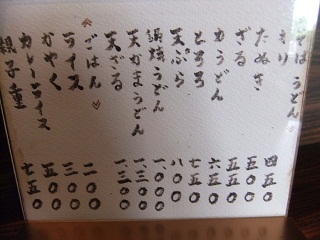 そば うどん
たぬき
ざる
力うどん
とろろ
天ぷら
鍋焼うどん
天かまうどん
天ざる
ごはん
ライス
かやく
カレーライス
親子重
四五〇
五五〇
五五〇
六五〇
七五〇
八〇〇
一、〇〇〇
一、三〇〇
一、三〇〇
二〇〇
三〇〇
五〇〇
七五〇